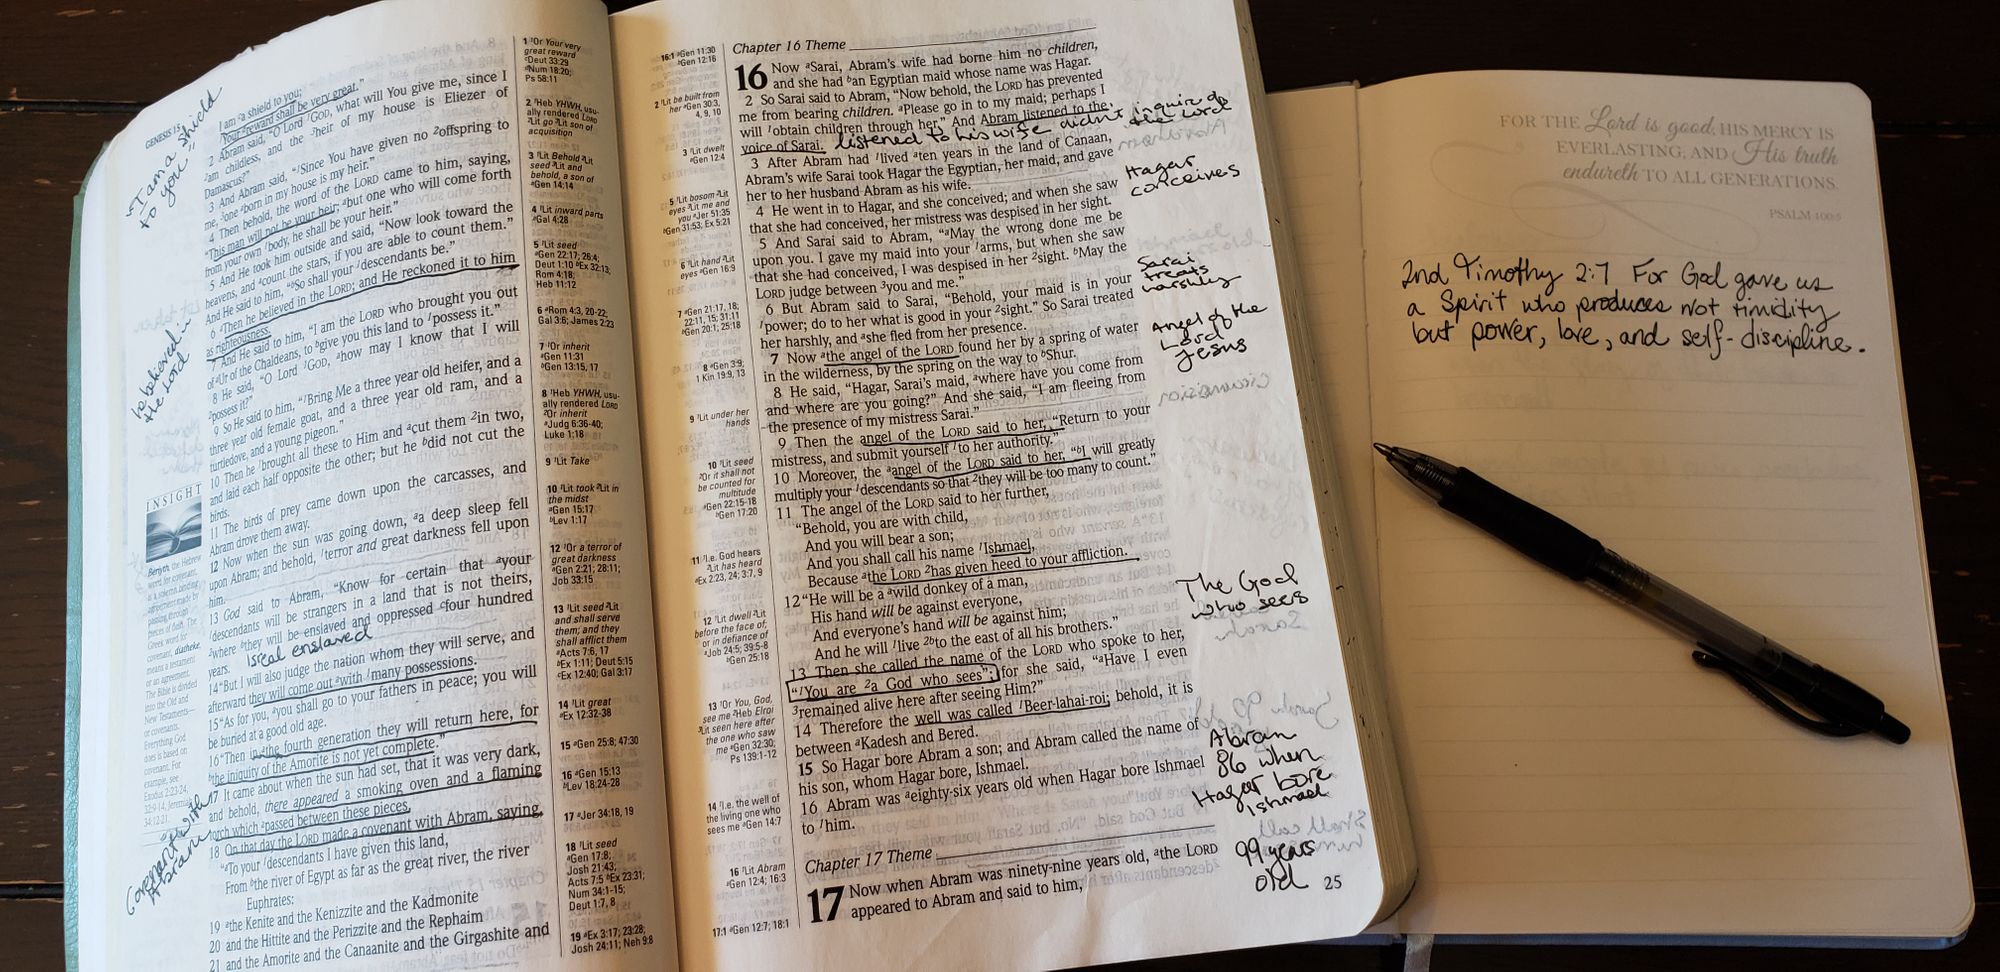 GENESIS 15
"I am a shield
to you"
he believed in
the Lord
INSIGHT
Beriyth, the Hebrew
word for covenant,
is a solemn binding
agreement made by
passing through
pieces of flesh. The
Greek word for
covenant, diatheke,
means a testament
or an agreement.
The Bible is divided
into the Old and
New Testaments—
or covenants.
Everything God
does is based on
covenant. For
example, see
Exodus 2:23,24,
32:9-14, Jeremiah
34:12-21.
Covenant with
Abram
I am ᵃa shield to you;
Your ᵇreward shall be very great."
2 Abram said, "O Lord ¹GOD, what will You give me, since I
²am childless, and the ³heir of my house is Eliezer of
Damascus?"
3 And Abram said, "¹Since You have given no ²offspring to
me, ³one ᵃborn in my house is my heir."
4 Then behold, the word of the LORD came to him, saying,
"This man will not be your heir; ᵃbut one who will come forth
from your own ¹body, he shall be your heir."
5 And He took him outside and said, "Now look toward the
heavens, and ᵃcount the stars, if you are able to count them."
And He said to him, "ᵇSo shall your ¹descendants be."
6 ᵃThen he believed in the LORD; and He reckoned it to him
as righteousness.
7 And He said to him, "I am the LORD who brought you out
of ᵃUr of the Chaldeans, to ᵇgive you this land to ¹possess it."
8 He said, "O Lord ¹GOD, ᵃhow may I know that I will
²possess it?"
9 So He said to him, "¹Bring Me a three year old heifer, and a
three year old female goat, and a three year old ram, and a
turtledove, and a young pigeon."
10 Then he ¹brought all these to Him and ᵃcut them ²in two,
and laid each half opposite the other; but he ᵇdid not cut the
birds.
11 The birds of prey came down upon the carcasses, and
Abram drove them away.
12 Now when the sun was going down, ᵃa deep sleep fell
upon Abram; and behold, ¹terror and great darkness fell upon
him.
13 God said to Abram, "Know for certain that ᵃyour
¹descendants will be strangers in a land that is not theirs,
²where ᵇthey will be enslaved and oppressed ᶜfour hundred
years. Isreal enslaved
14 "But I will also judge the nation whom they will serve, and
afterward they will come out ᵃwith ¹many possessions.
15 "As for you, ᵃyou shall go to your fathers in peace; you will
be buried at a good old age.
16 "Then in ᵃthe fourth generation they will return here, for
ᵇthe iniquity of the Amorite is not yet complete."
17 It came about when the sun had set, that it was very dark,
and behold, there appeared a smoking oven and a flaming
torch which ᵃpassed between these pieces.
18 On that day the LORD made a covenant with Abram, saying,
"ᵃTo your ¹descendants I have given this land,
From ᵇthe river of Egypt as far as the great river, the river
Euphrates:
19 ᵃthe Kenite and the Kenizzite and the Kadmonite
20 and the Hittite and the Perizzite and the Rephaim
21 and the Amorite and the Canaanite and the Girgashite and
1 ¹Or Your very
great reward
ᵃDeut 33:29
ᵇNum 18:20;
Ps 58:11
2 ¹Heb YHWH, usu-
ally rendered LORD
²Lit go ³Lit son of
acquisition
3 ¹Lit Behold ²Lit
seed ³Lit and
behold, a son of
ᵃGen 14:14
4 ¹Lit inward parts
ᵃGal 4:28
5 ¹Lit seed
ᵃGen 22:17; 26:4;
Deut 1:10 ᵇEx 32:13;
Rom 4:18;
Heb 11:12
6 ᵃRom 4:3, 20-22;
Gal 3:6; James 2:23
7 ¹Or inherit
ᵃGen 11:31
ᵇGen 13:15, 17
8 ¹Heb YHWH, usu-
ally rendered LORD
²Or inherit
ᵃJudg 6:36-40;
Luke 1:18
9 ¹Lit Take
10 ¹Lit took ²Lit in
the midst
ᵃGen 15:17
ᵇLev 1:17
12 ¹Or a terror of
great darkness
ᵃGen 2:21; 28:11;
Job 33:15
13 ¹Lit seed ²Lit
and shall serve
them; and they
shall afflict them
ᵃActs 7:6, 17
ᵇEx 1:11; Deut 5:15
ᶜEx 12:40; Gal 3:17
14 ¹Lit great
ᵃEx 12:32-38
15 ᵃGen 25:8; 47:30
16 ᵃGen 15:13
ᵇLev 18:24-28
17 ᵃJer 34:18, 19
18 ¹Lit seed
ᵃGen 17:8;
Josh 21:43;
Acts 7:5 ᵇEx 23:31;
Num 34:1-15;
Deut 1:7, 8
19 ᵃEx 3:17; 23:28;
Josh 24:11; Neh 9:8
16:1 ᵃGen 11:30
ᵇGen 12:16
2 ¹Lit be built from
her ᵃGen 30:3,
4, 9, 10
3 ¹Lit dwelt
ᵃGen 12:4
5 ¹Lit bosom ²Lit
eyes ³Lit me and
you ᵃJer 51:35
ᵇGen 31:53; Ex 5:21
6 ¹Lit hand ²Lit
eyes ᵃGen 16:9
7 ᵃGen 21:17, 18;
22:11, 15; 31:11
ᵇGen 20:1; 25:18
8 ᵃGen 3:9;
1 Kin 19:9, 13
9 ¹Lit under her
hands
10 ¹Lit seed
²Or it shall not
be counted for
multitude
ᵃGen 22:15-18
ᵇGen 17:20
11 ¹I.e. God hears
²Lit has heard
ᵃEx 2:23, 24; 3:7, 9
12 ¹Lit dwell ²Lit
before the face of;
or in defiance of
ᵃJob 24:5; 39:5-8
ᵇGen 25:18
13 ¹Or You, God,
see me ²Heb Elroi
³Lit seen here after
the one who saw
me ᵃGen 32:30;
Ps 139:1-12
14 ¹I.e. the well of
the living one who
sees me ᵃGen 14:7
16 ¹Lit Abram
ᵃGen 12:4; 16:3
17:1 ᵃGen 12:7; 18:1
Chapter 16 Theme
16 Now ᵃSarai, Abram's wife had borne him no children,
and she had ᵇan Egyptian maid whose name was Hagar.
2 So Sarai said to Abram, "Now behold, the LORD has prevented
me from bearing children. ᵃPlease go in to my maid; perhaps I
will ¹obtain children through her." And Abram listened to the
voice of Sarai. listened to his wife didn't inquire of
the Lord
3 After Abram had ¹lived ᵃten years in the land of Canaan,
Abram's wife Sarai took Hagar the Egyptian, her maid, and gave
her to her husband Abram as his wife.
4 He went in to Hagar, and she conceived; and when she saw
that she had conceived, her mistress was despised in her sight.
5 And Sarai said to Abram, "ᵃMay the wrong done me be
upon you. I gave my maid into your ¹arms, but when she saw
that she had conceived, I was despised in her ²sight. ᵇMay the
LORD judge between ³you and me."
6 But Abram said to Sarai, "Behold, your maid is in your
¹power; do to her what is good in your ²sight." So Sarai treated
her harshly, and ᵃshe fled from her presence.
7 Now ᵃthe angel of the LORD found her by a spring of water
in the wilderness, by the spring on the way to ᵇShur.
8 He said, "Hagar, Sarai's maid, ᵃwhere have you come from
and where are you going?" And she said, "I am fleeing from
the presence of my mistress Sarai."
9 Then the angel of the LORD said to her, "Return to your
mistress, and submit yourself ¹to her authority."
10 Moreover, the ᵃangel of the LORD said to her, "ᵇI will greatly
multiply your ¹descendants so that ²they will be too many to count."
11 The angel of the LORD said to her further,
"Behold, you are with child,
And you will bear a son;
And you shall call his name ¹Ishmael,
Because ᵃthe LORD ²has given heed to your affliction.
12 "He will be a ᵃwild donkey of a man,
His hand will be against everyone,
And everyone's hand will be against him;
And he will ¹live ²ᵇto the east of all his brothers."
13 Then she called the name of the LORD who spoke to her,
"¹You are ²a God who sees"; for she said, "ᵃHave I even
³remained alive here after seeing Him?"
14 Therefore the well was called ¹Beer-lahai-roi; behold, it is
between ᵃKadesh and Bered.
15 So Hagar bore Abram a son; and Abram called the name of
his son, whom Hagar bore, Ishmael.
16 Abram was ᵃeighty-six years old when Hagar bore Ishmael
to ¹him.
Chapter 17 Theme
17 Now when Abram was ninety-nine years old, ᵃthe LORD
appeared to Abram and said to him,
Hagar
conceives
Sarai
treats
harshly
Angel of the
Lord
Jesus
The God
who sees
Abram
86 when
Hagar bore
Ishmael
99 years
old
25
FOR THE Lord is good, HIS MERCY IS
EVERLASTING; AND His truth
endureth TO ALL GENERATIONS.
PSALM 100:5
2nd Timothy 2:7 For God gave us
a Spirit who produces not timidity
but power, love, and self-discipline.